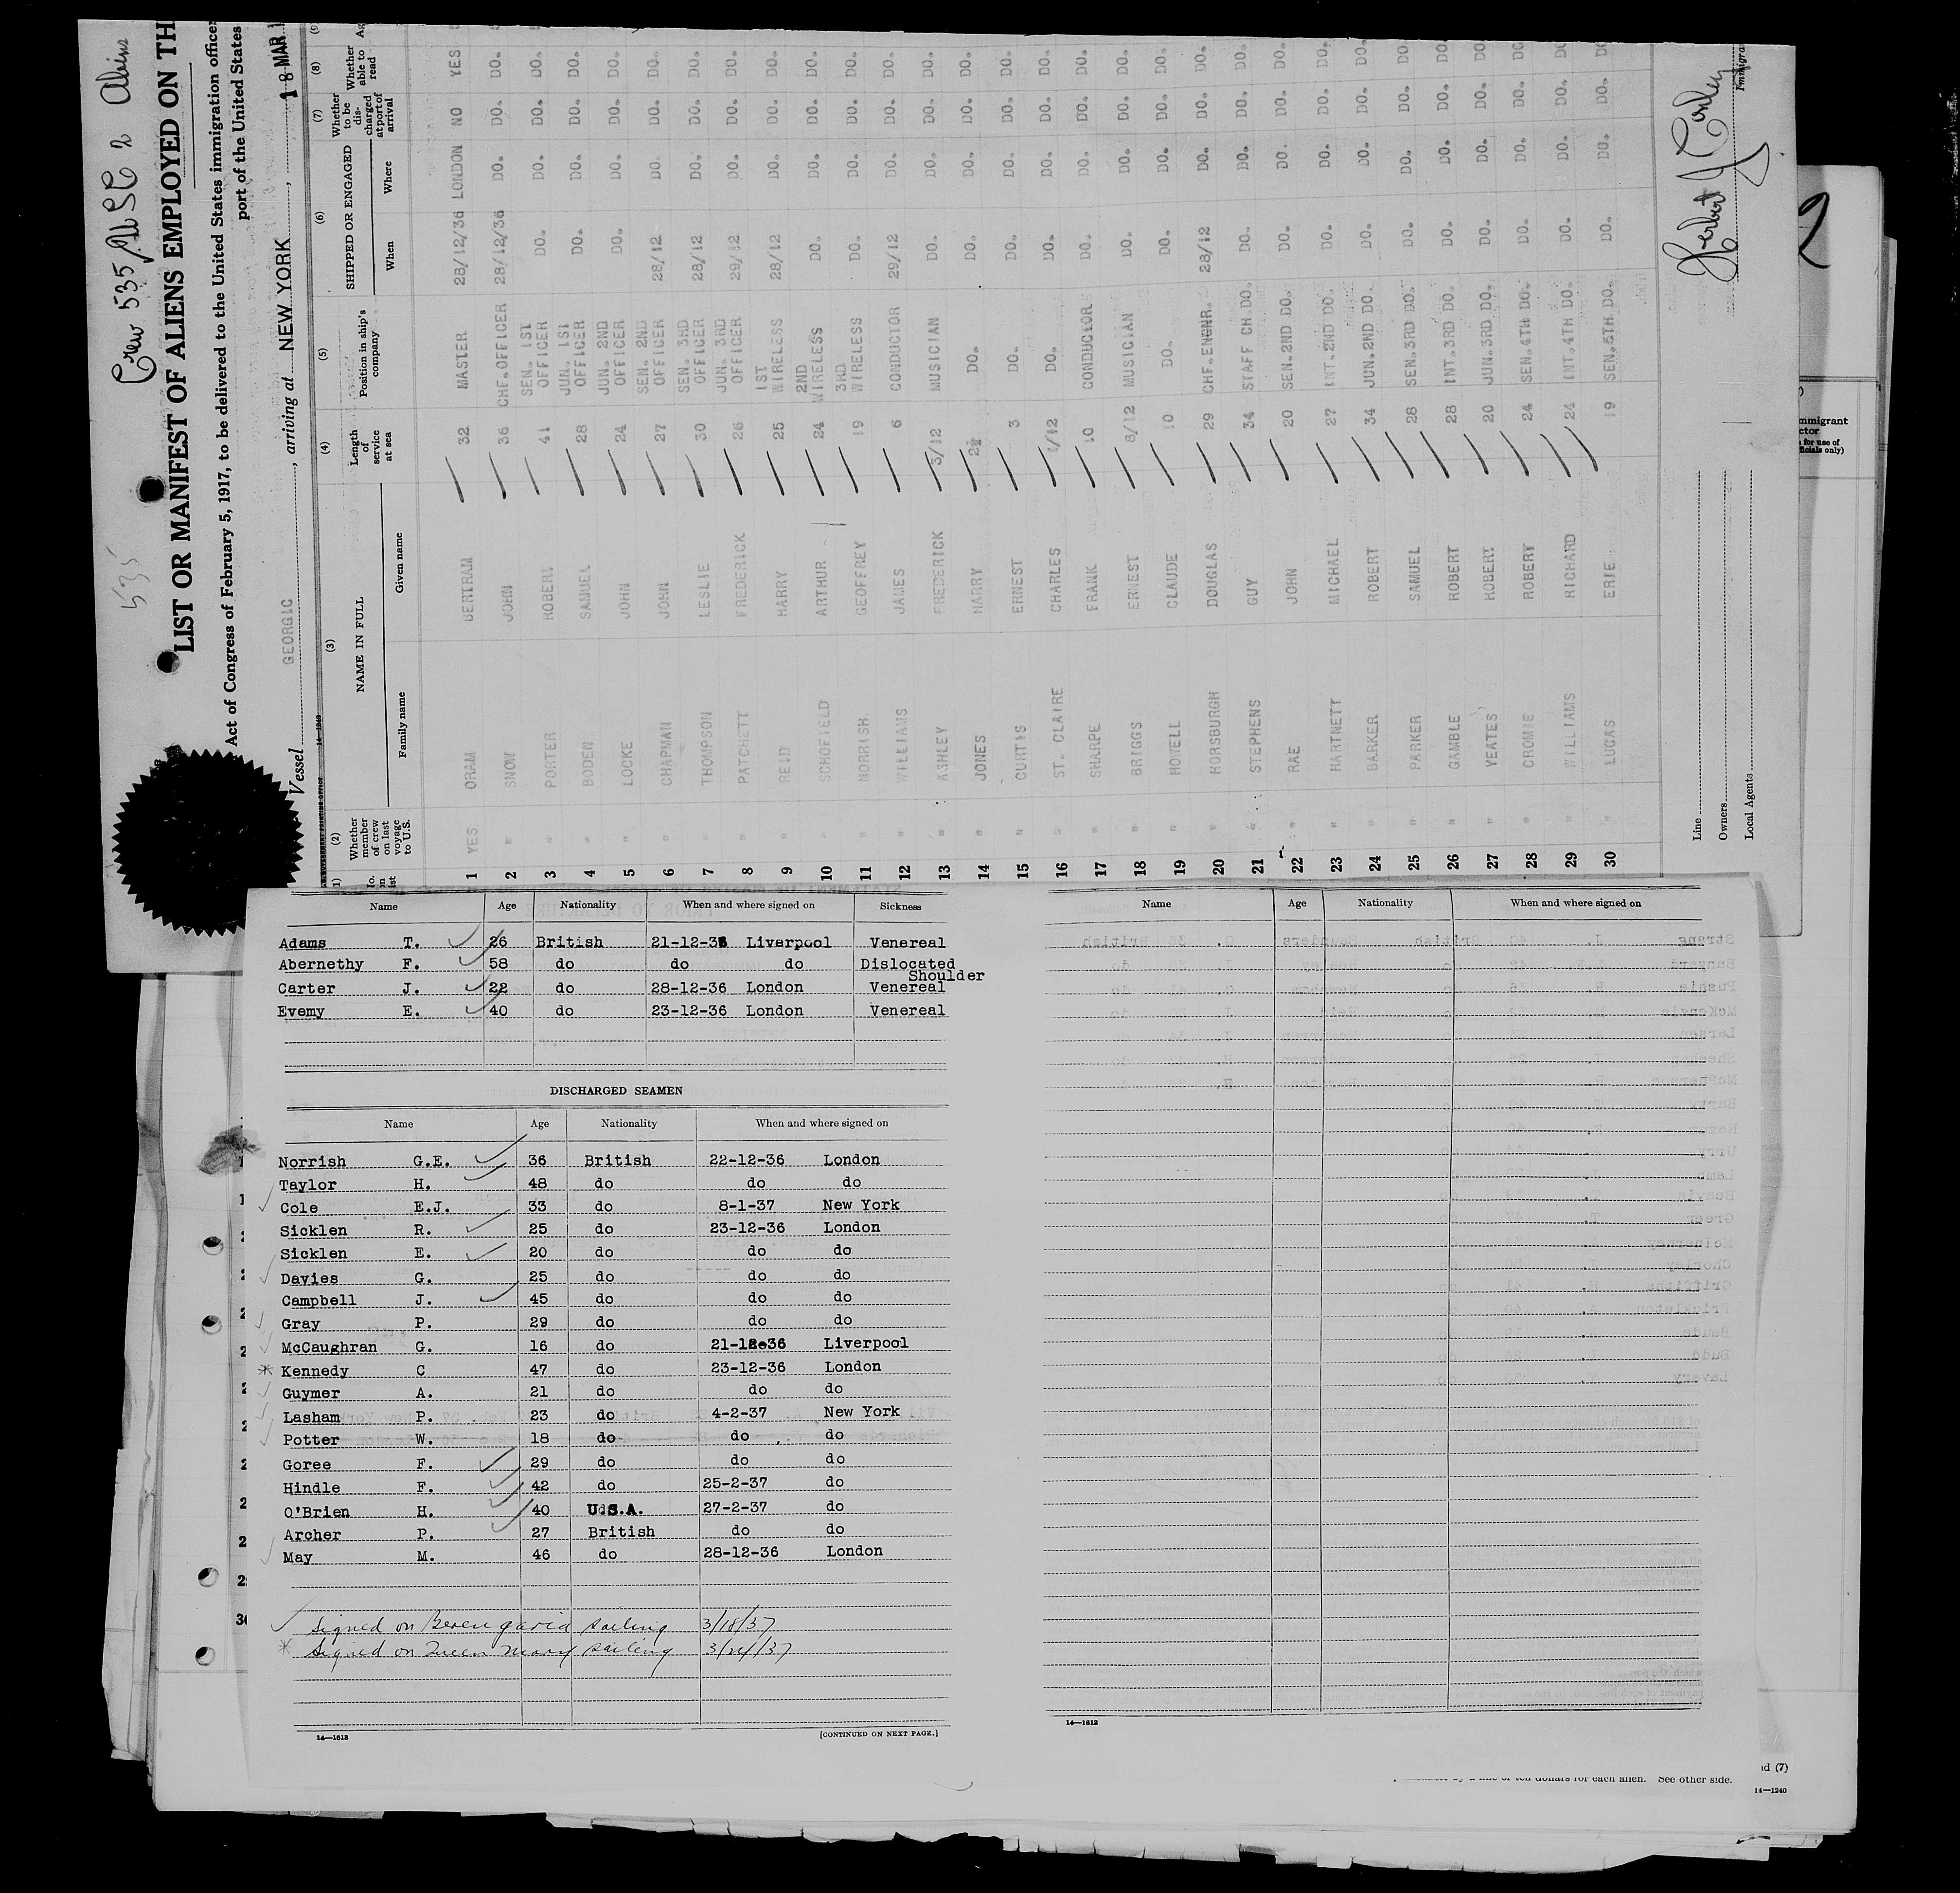 Crew 535
535
LIST OR MANIFEST OF ALIENS EMPLOYED ON TH
Act of Congress of February 5, 1917, to be delivered to the United States immigration officer
port of the United States
Vessel GEORGIC, arriving at NEW YORK, 18 MAR
(2) (3) (4) (5) (6) (7) (8)
Whether member of crew on last voyage to U.S. NAME IN FULL Family name Given name Length of service at sea Position in ship's company SHIPPED OR ENGAGED When Where Whether to be discharged at port of arrival Whether able to read
1 YES ORAM BERTRAM 32 MASTER 28/12/36 LONDON NO YES
2 " SNOW JOHN 36 CHF.OFFICER 28/12/36 DO. DO. DO.
3 " PORTER ROBERT 41 SEN. 1ST OFFICER DO. DO. DO. DO.
4 " BODEN SAMUEL 28 JUN. 1ST OFFICER DO. DO. DO. DO.
5 " LOCKE JOHN 24 JUN. 2ND OFFICER DO. DO. DO. DO.
6 " CHAPMAN JOHN 27 SEN. 2ND OFFICER 28/12 DO. DO. DO.
7 " THOMPSON LESLIE 30 SEN. 3RD OFFICER 28/12 DO. DO. DO.
8 " PATCHETT FREDERICK 26 JUN. 3RD OFFICER 29/12 DO. DO. DO.
9 " REID HARRY 25 1ST WIRELESS 28/12 DO. DO. DO.
10 " SCHOFIELD ARTHUR 24 2ND WIRELESS DO. DO. DO. DO.
11 " NORRISH. GEOFFREY 19 3RD WIRELESS DO. DO. DO. DO.
12 " WILLIAMS JAMES 6 CONDUCTOR 29/12 DO. DO. DO.
13 " ASHLEY FREDERICK 3/12 MUSICIAN DO. DO. DO. DO.
14 " JONES HARRY 2½ DO. DO. DO. DO. DO.
15 " CURTIS ERNEST 3 DO. DO. DO. DO. DO.
16 " ST. CLAIRE CHARLES 1/12 DO. DO. DO. DO. DO.
17 " SHARPE FRANK 10 CONDUCTOR DO. DO. DO. DO.
18 " BRIGGS ERNEST 8/12 MUSICIAN DO. DO. DO. DO.
19 " HOWELL CLAUDE 10 DO. DO. DO. DO. DO.
20 " HORSBURGH DOUGLAS 29 CHF.ENGNR. 28/12 DO. DO. DO.
21 " STEPHENS GUY 34 STAFF CH.DO. DO. DO. DO. DO.
22 " RAE JOHN 20 SEN.2ND DO. DO. DO. DO. DO.
23 " HARTNETT MICHAEL 27 INT.2ND DO. DO. DO. DO. DO.
24 " BARKER ROBERT 34 JUN.2ND DO. DO. DO. DO. DO.
25 " PARKER SAMUEL 28 SEN.3RD DO. DO. DO. DO. DO.
26 " GAMBLE ROBERT 28 INT.3RD DO. DO. DO. DO. DO.
27 " YEATES ROBERT 20 JUN.3RD DO. DO. DO. DO. DO.
28 " CROMIE ROBERT 24 SEN.4TH DO. DO. DO. DO. DO.
29 " WILLIAMS RICHARD 24 INT.4TH DO. DO. DO. DO. DO.
30 " LUCAS ERIE 19 SEN.5TH DO. DO. DO. DO. DO.
Line
Owners
Local Agents
2
Name Age Nationality When and where signed on Sickness
Adams T. 26 British 21-12-36 Liverpool Venereal
Abernethy F. 58 do do do Dislocated Shoulder
Carter J. 22 do 28-12-36 London Venereal
Evemy E. 40 do 23-12-36 London Venereal
DISCHARGED SEAMEN
Name Age Nationality When and where signed on
Norrish G.E. 36 British 22-12-36 London
Taylor H. 48 do do do
Cole E.J. 33 do 8-1-37 New York
Sicklen R. 25 do 23-12-36 London
Sicklen E. 20 do do do
Davies G. 25 do do do
Campbell J. 45 do do do
Gray P. 29 do do do
McCaughran G. 16 do 21-12-36 Liverpool
* Kennedy C 47 do 23-12-36 London
Guymer A. 21 do do do
Lasham P. 23 do 4-2-37 New York
Potter W. 18 do do do
Goree F. 29 do do do
Hindle F. 42 do 25-2-37 do
O'Brien H. 40 U.S.A. 27-2-37 do
Archer P. 27 British do do
May M. 46 do 28-12-36 London
Signed on Berengaria sailing 3/18/37
* Signed on Queen Mary sailing 3/24/37
14—1613 [CONTINUED ON NEXT PAGE.]
Name Age Nationality When and where signed on
14—1612
for each alien. See other side.
14—1240